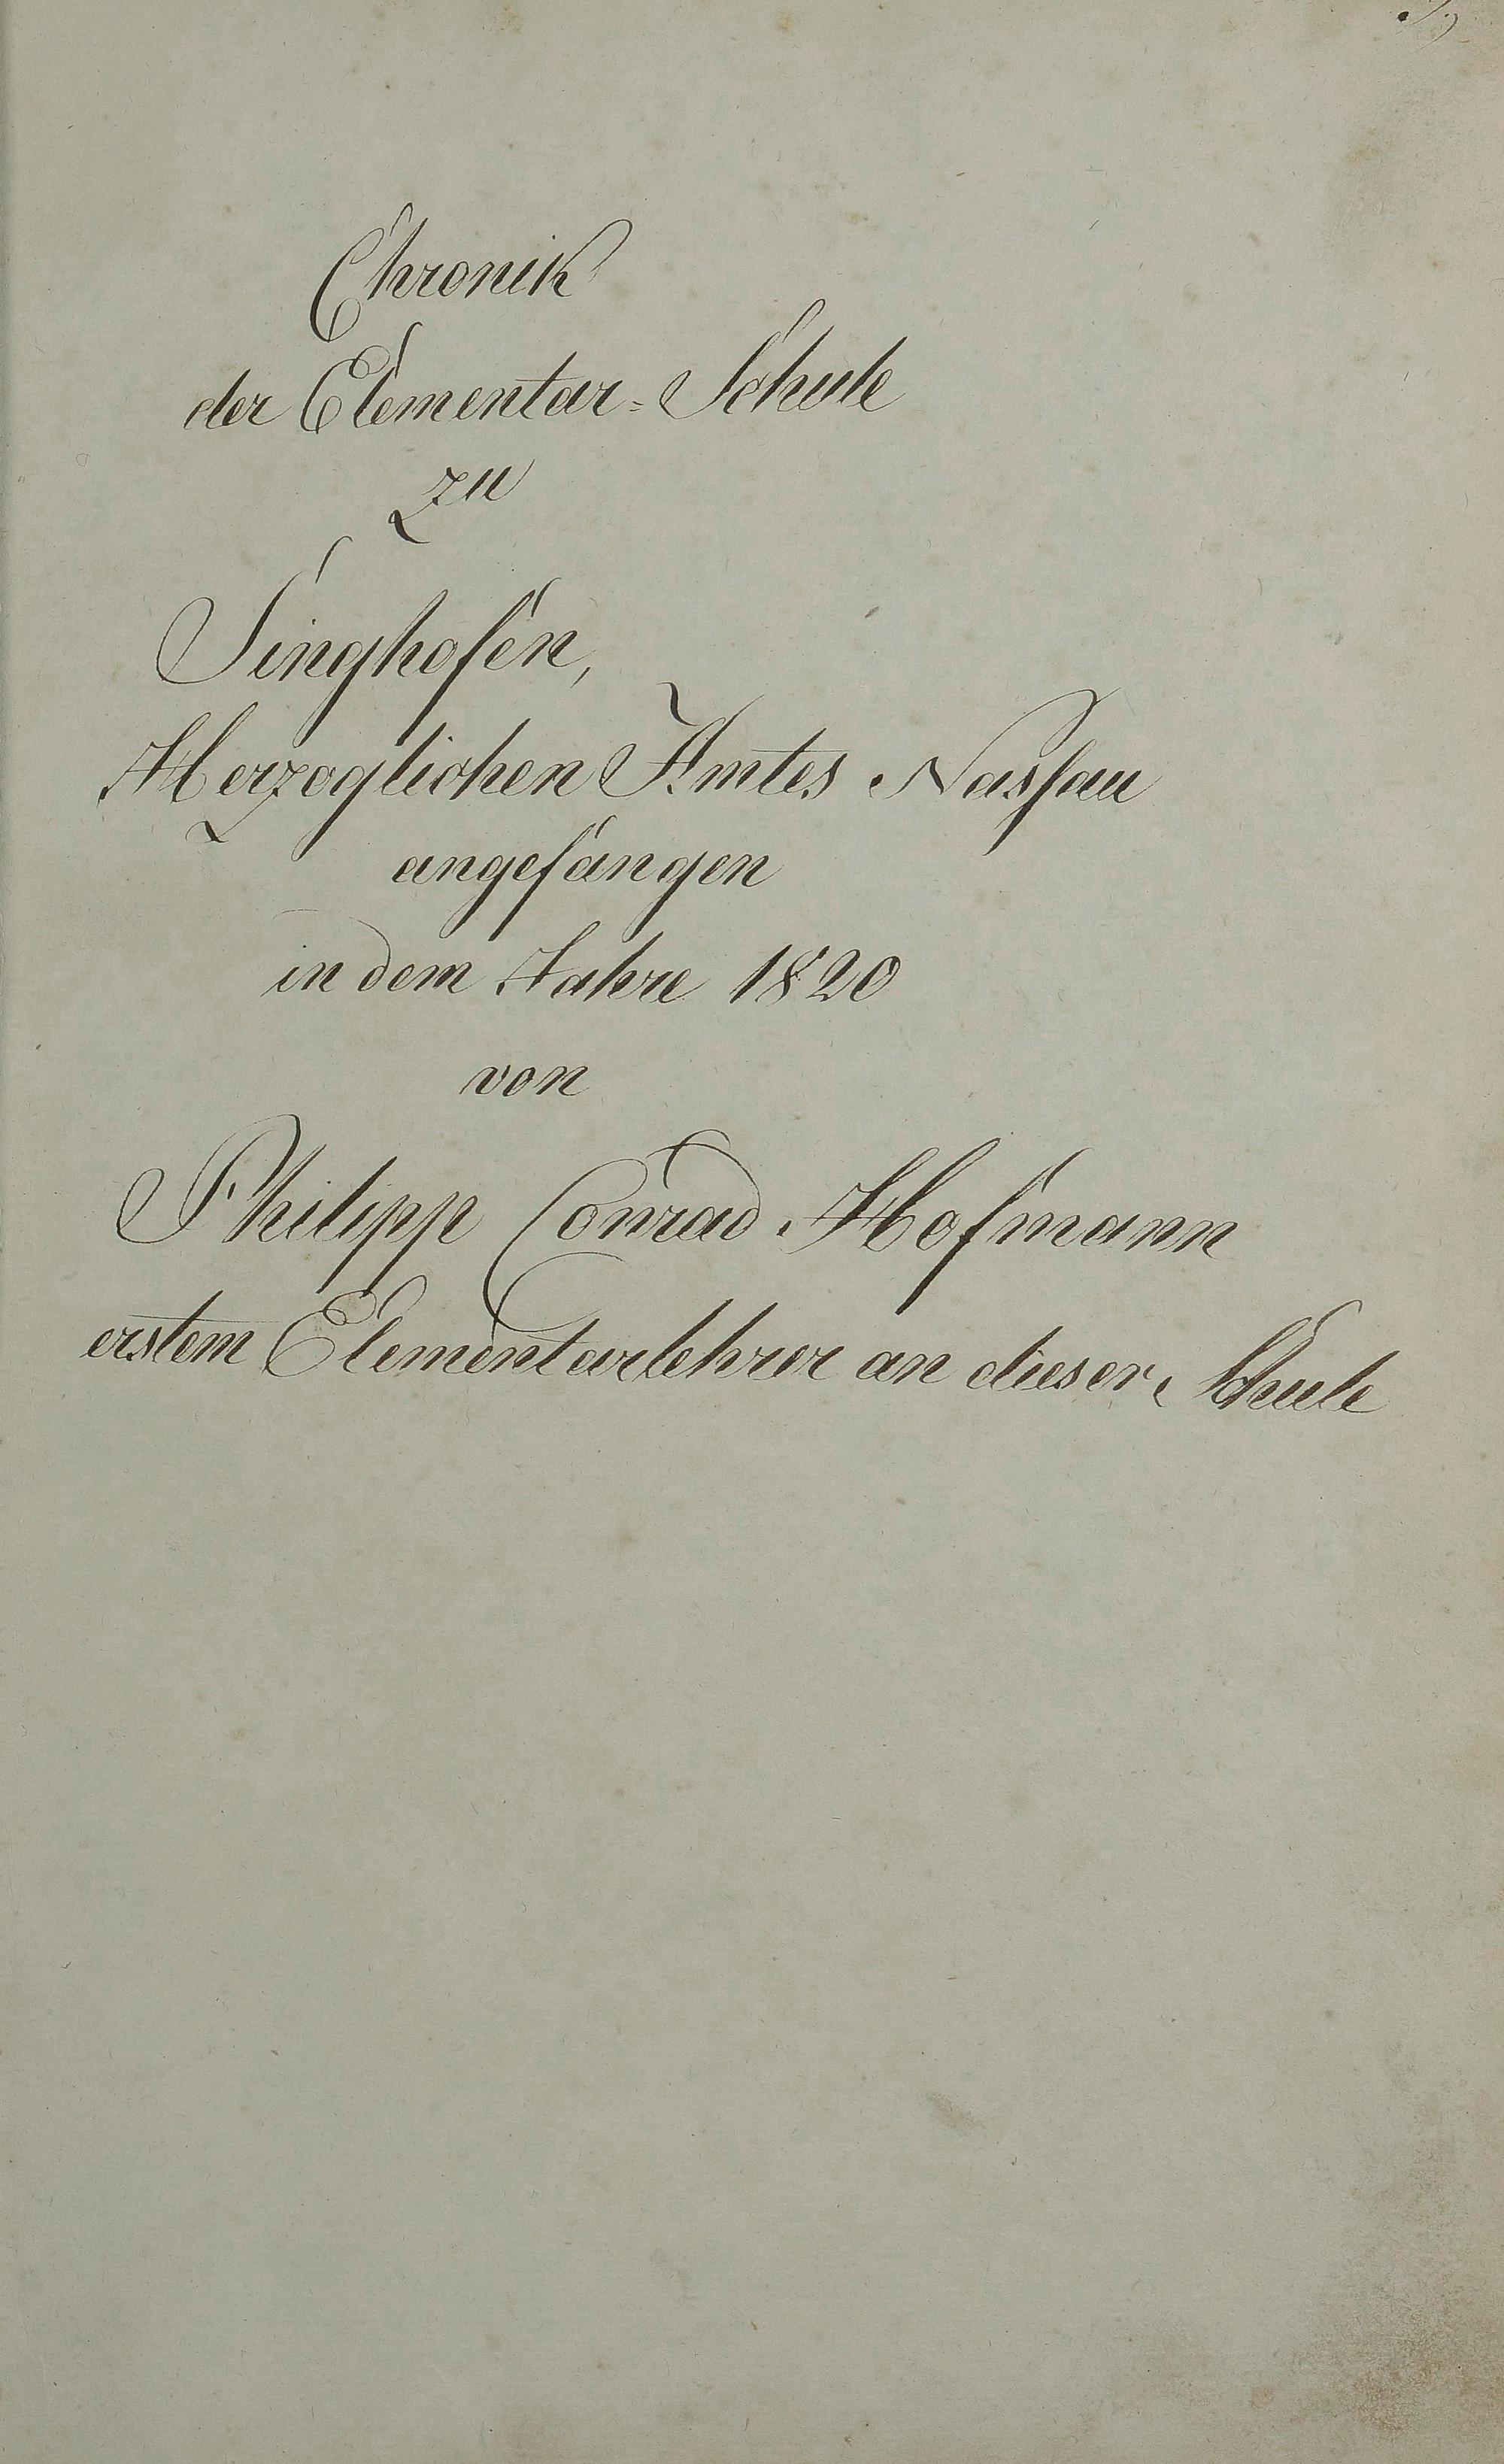 Chronik
der Elementar=Schule
zu
Singhofen,
Herzoglichen Amtes Nassau
angefangen
in dem Jahre 1820
von
Philipp Conrad Hofmann
erstem Elementarlehrer an dieser Schule